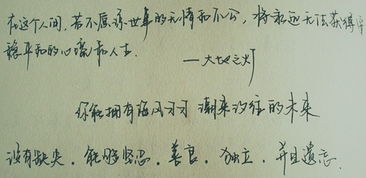 在这个人间，若不原谅世事的无情和不公，将永远无法获得安
稳平和的心境和人生
——大地之灯
你能拥有海风习习 潮来汐往的未来
没有缺失，能够坚忍，善良，独立，并且遗忘.